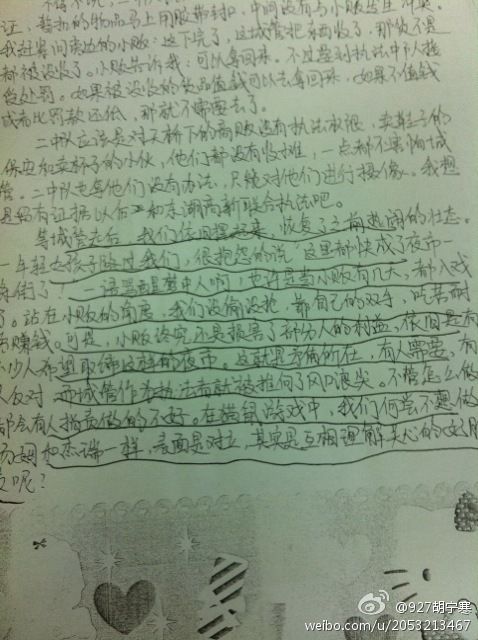 证，暂扣的物品马上用胶带封口，中间没有与小贩发生冲突。
我赶紧问旁边的小贩：这下完了，这城管把东西收了，那货不是
都被没收了。小贩告诉我：可以拿回来。不过要到执法中队接
受处罚。如果被没收的货品值钱可以去拿回来，如果不值钱
或者比罚款还低，那就不需要去了。
二中队应该是对天桥下的商贩没有执法权限，卖鞋子的
保安和卖杯子的小伙，他们都没有收摊，一点都不害怕城
管。二中队也拿他们没有办法，只能对他们进行摄像。我想
是留有证据以后和东湖高新联合执法吧。
等城管走后，我们依旧摆起来，恢复了之前热闹的状态。
一年轻女孩子路过我们，很抱怨的说，这里都快成了夜市一
条街了！一语惊醒梦中人啊，也许是当小贩有几天，都入戏
了。站在小贩的角度，我们没偷没抢，靠自己的双手，吃苦耐
劳赚钱。可是，小贩终究还是损害了部分人的利益，依旧是有
不少人希望取缔这样的夜市。这就是矛盾所在，有人需要，有
人反对，而城管作为执法者就被推向了风口浪尖。不管怎么做
都会有人指责做的不好。在猫鼠游戏中，我们何尝不想做
汤姆和杰瑞一样，表面是对立，其实是互相理解关心的好朋
友呢？
@927胡宁寒
weibo.com/u/2053213467